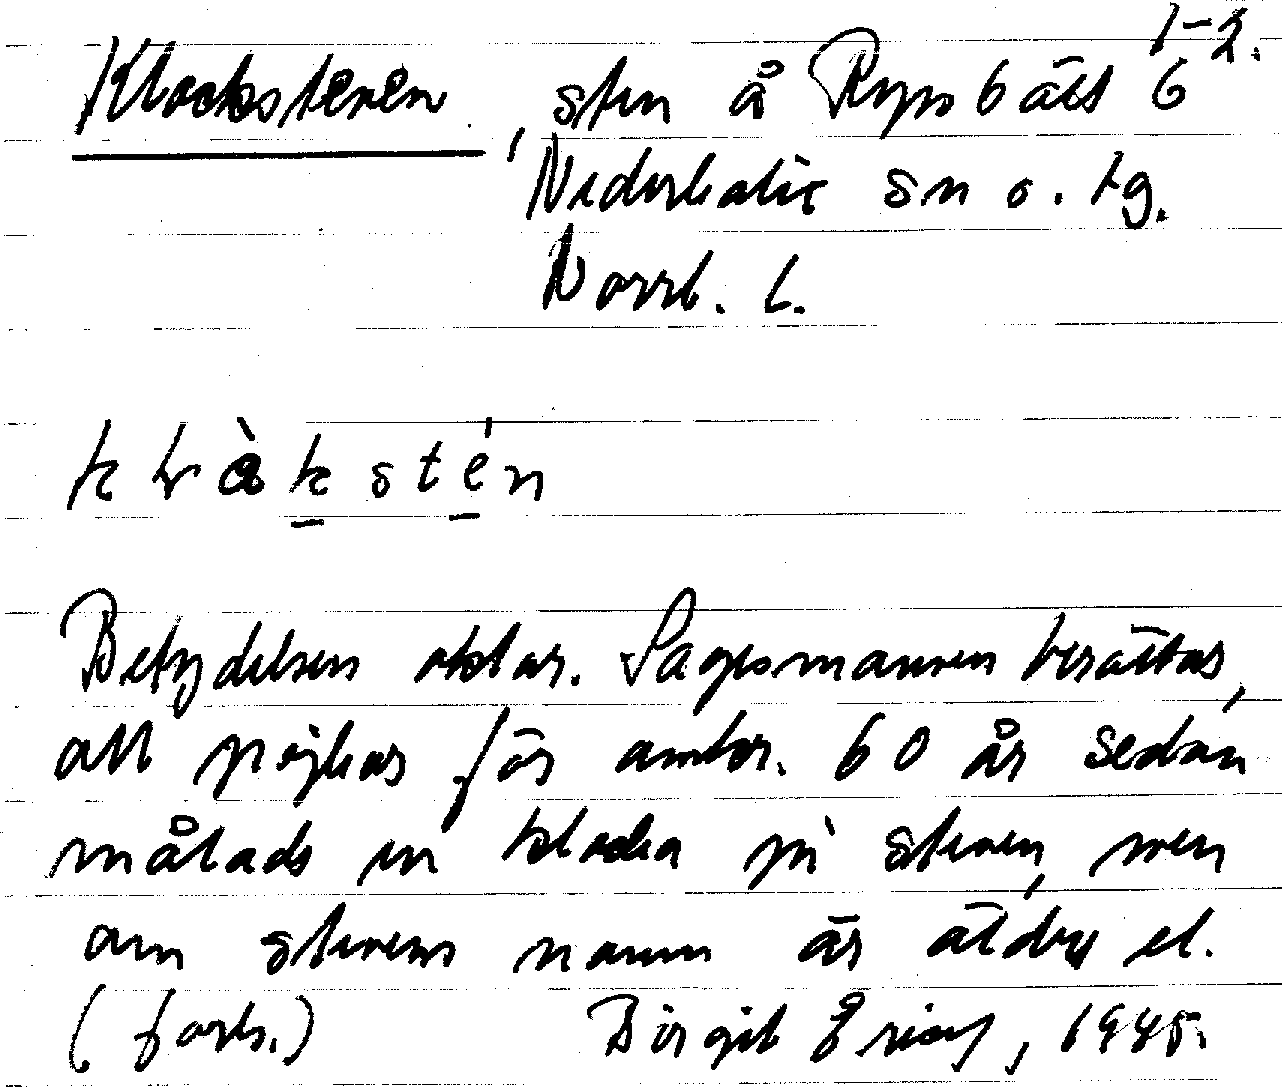 1-2.
Klockstenen, sten å Ryssbält 6
Nederkalix sn o. tg.
Norrb. l.
klåkstén
Betydelsen oklar. Sagesmannen berättar,
att pojkar för omkr. 60 år sedan
målade en klocka på stenen, men
om stenens namn är äldre el.
(forts.) Birgit 1945.